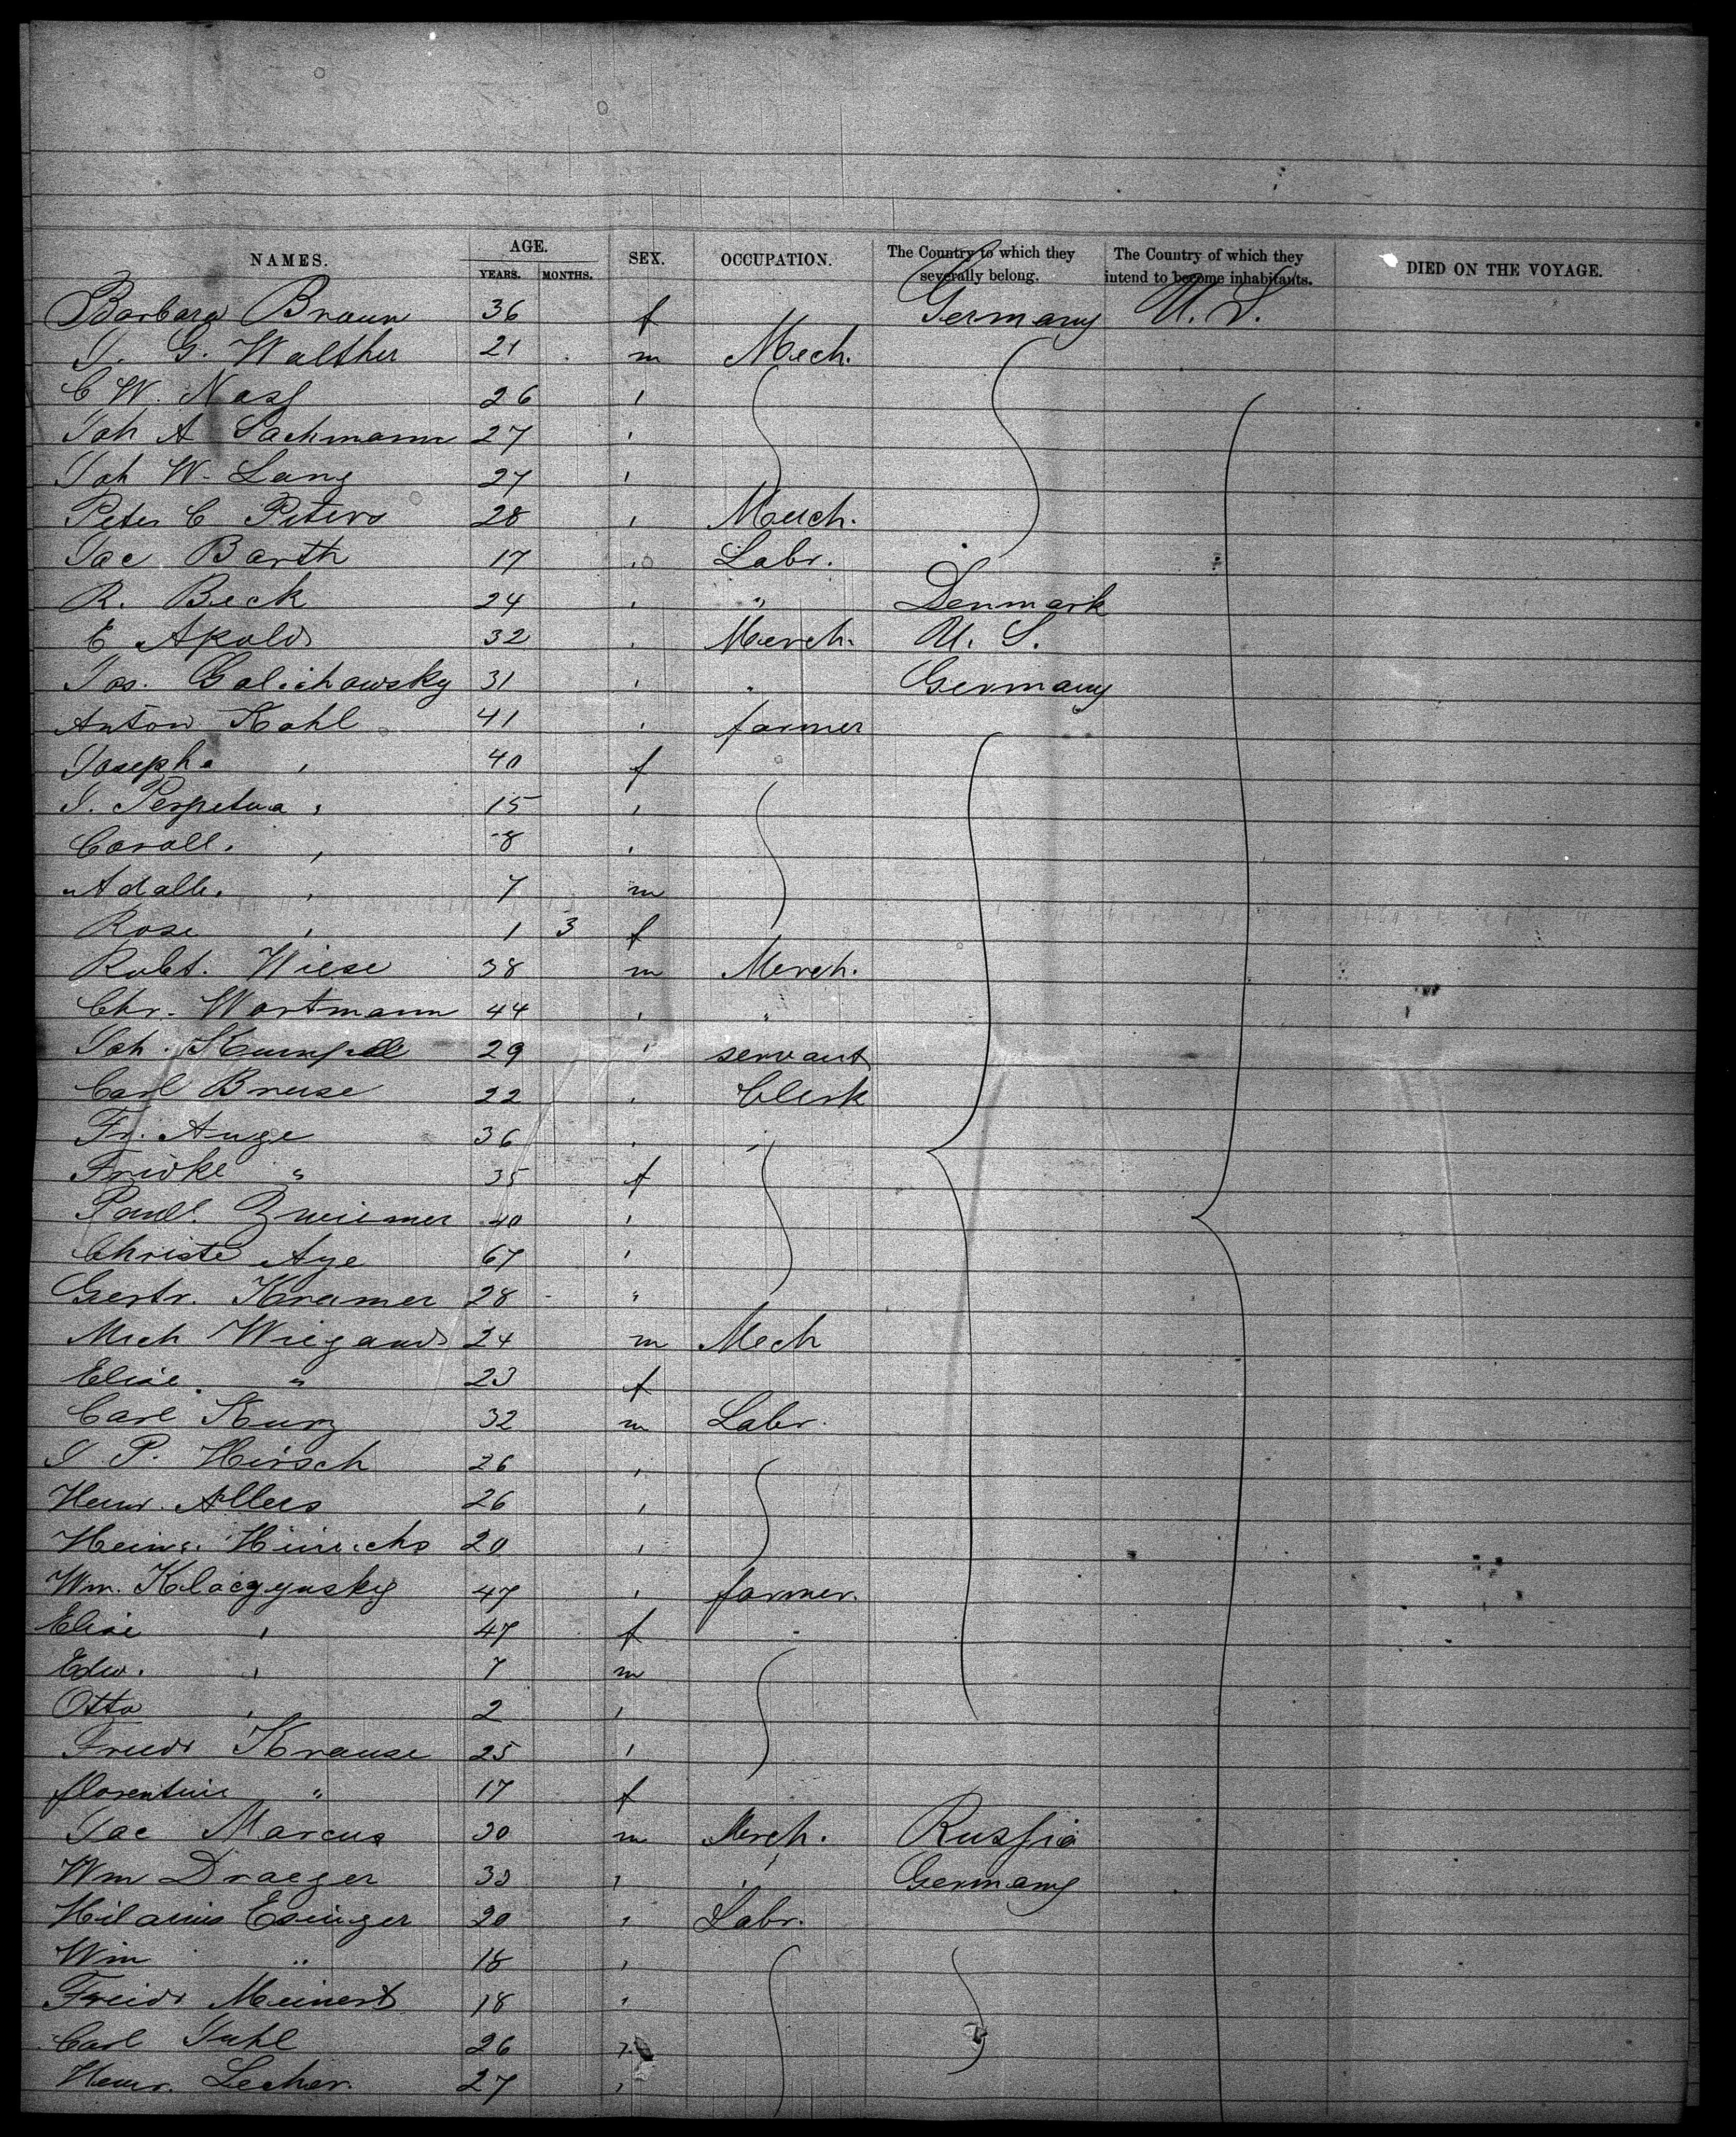 NAMES. AGE. YEARS. MONTHS. SEX. OCCUPATION. The Country to which they severally belong. The Country of which they intend to become inhabitants. DIED ON THE VOYAGE.
Barbara Braun 36 f Germany U. S.
J. G. Walther 21 m Mech.
C W. Nass 26 '
Joh A Lachmann 27 '
Joh W. Lang 27 '
Peter C Peters 28 ' Merch.
Jac Barth 17 ' Labr.
R. Beck 24 ' " Denmark
E Apolds 32 ' Merch. U. S.
Jos. Golichowsky 31 ' " Germany
Anton Kohl 41 ' farmer
Josepha ' 40 f
J. Perpetua ' 15 '
Coroll. ' 8 '
Adalb. ' 7 m
Rose ' 1 3 f
Robt. Wiese 38 m Merch.
Chr. Wortmann 44 ' "
Joh. 29 ' servant
Carl Bruse 22 ' Clerk
Fr. Auge 36 ' '
Fridke " 35 f
Paul. 40 '
Christe Aye 67 '
Gertr. Kramer 28 "
Mich Wiegand 24 m Mech
Elise " 23 f
Carl Kurz 32 m Labr.
J. P. Hirsch 26 '
Henr. Allers 26 '
Heinr. Hinrichs 20 '
Wm. Klaczynsky 47 ' farmer.
Elise ' 47 f
Edw. ' 7 m
Otto ' 2 '
Friedr Krause 25 '
florentine " 17 f
Jac Marcus 30 m Merch. Russia
Wm Draeger 33 ' ' Germany
Hilarius Esinger 20 ' Labr.
Wm " 18 '
Friedr Meinert 18 '
Carl Juhl 26 "
Henr. Lecher. 27 '